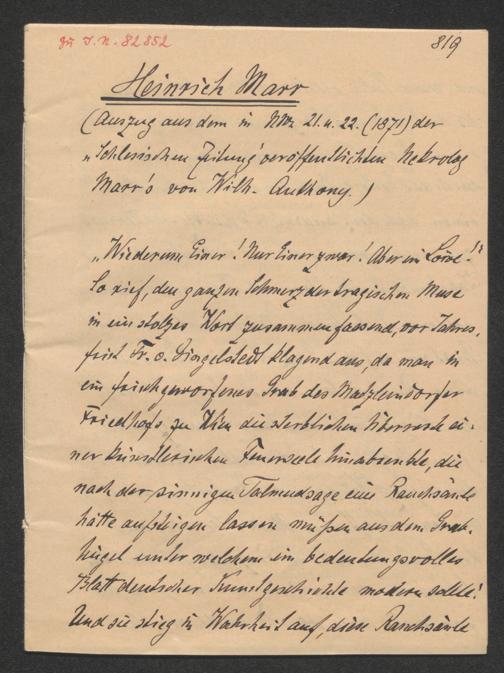 zu I.N. 82852
819
Heinrich Marr
(Auszug aus dem in Nro. 21. u. 22. (1871) der
„Schlesischen Zeitung" veröffentlichten Nekrolog
Marr's von Wilh. Anthony.)
„Wiederum Einer! Nur Einer zwar! Aber ein Löwe!"
So rief, den ganzen Schmerz der tragischen Muse
in ein stolzes Wort zusammenfassend, vor Jahres-
frist Fr. v. Dingelstedt klagend aus, da man in
ein frischgeworfenes Grab des Matzleindorfer
Friedhofs zu Wien die sterblichen Überreste ei-
ner künstlerischen Feuerseele hinabsenkte, die
nach der sinnigen Talmudsage eine Rauchsäule
hätte aufsteigen lassen müßen aus dem Grab-
hügel unter welchem ein bedeutungsvolles
Blatt deutscher Kunstgeschichte modern sollte!
Und sie stieg in Wahrheit auf, diese Rauchsäule